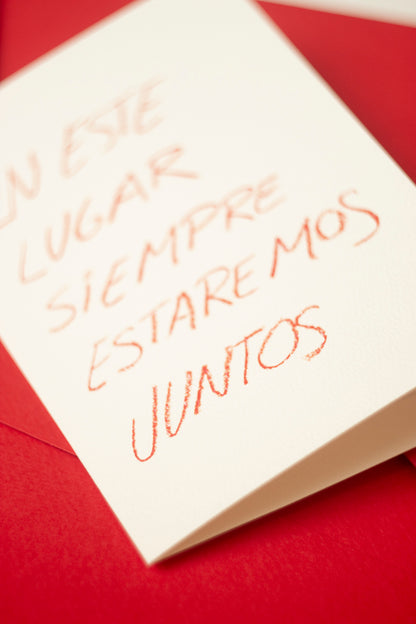 EN ESTE
LUGAR
SIEMPRE
ESTAREMOS
JUNTOS